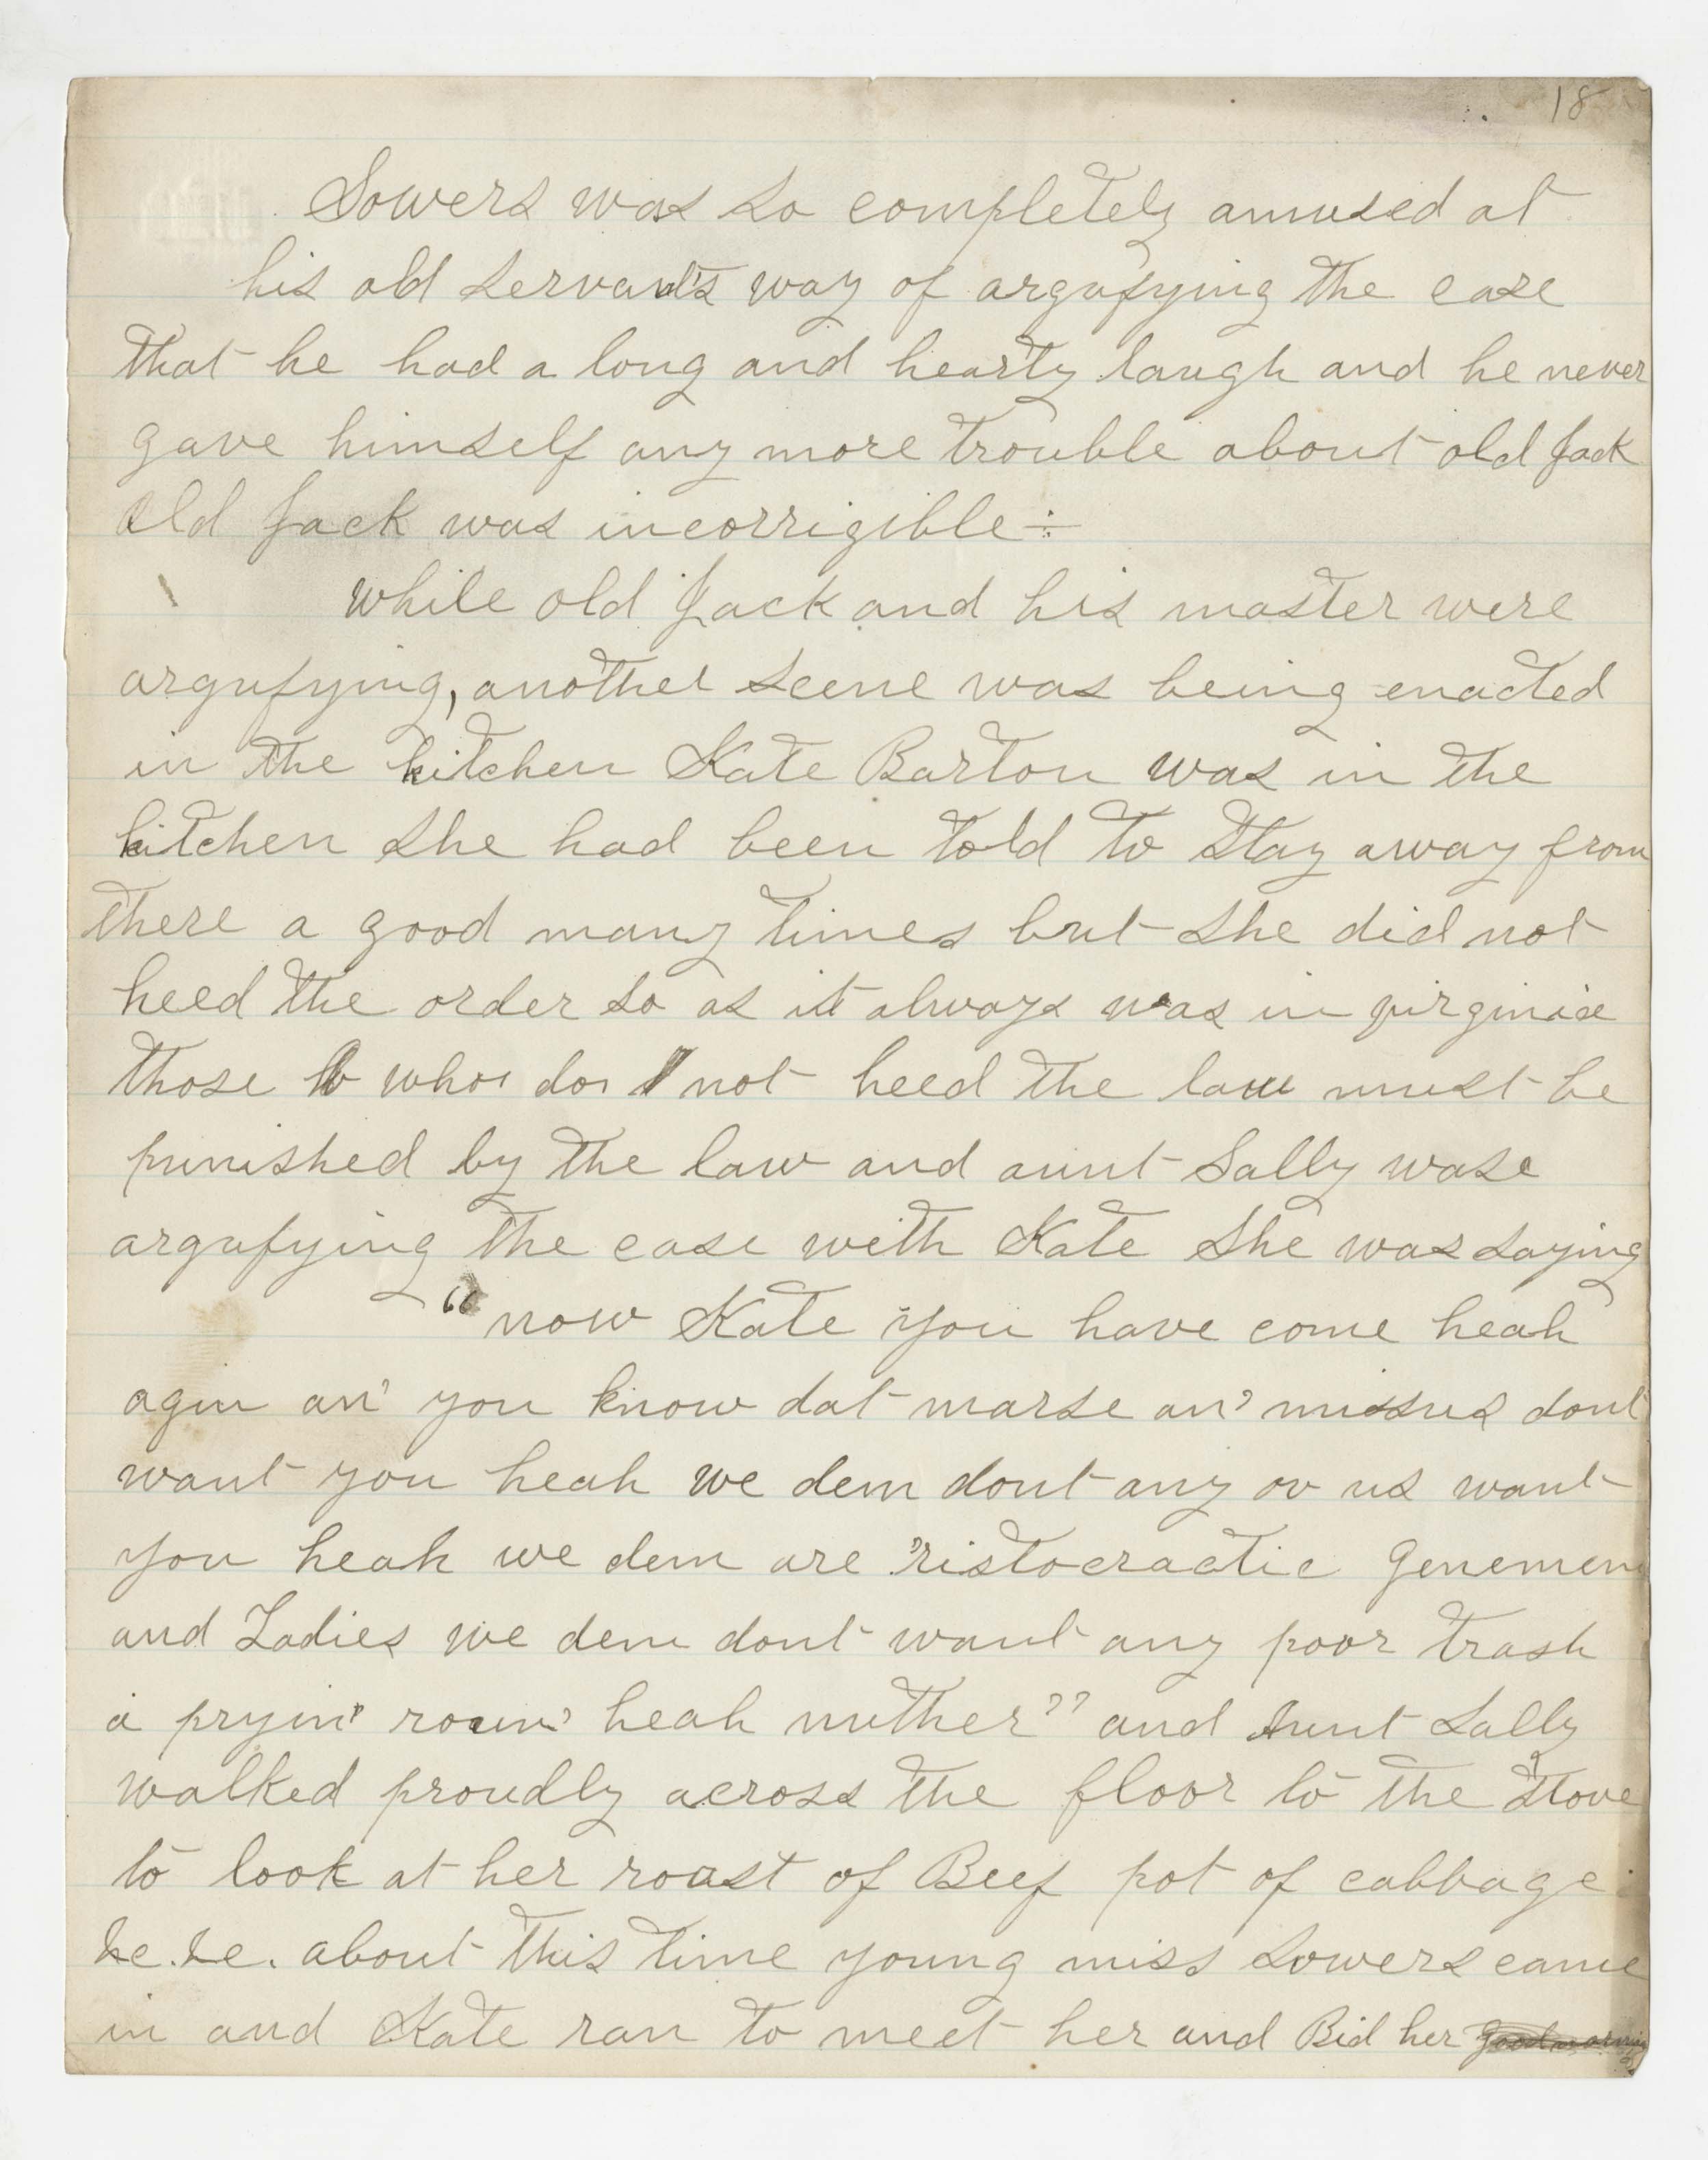 18
Sowers was so completely amused at
his old servant's way of argufying the case
that he had a long and hearty laugh and he never
gave himself any more trouble about old Jack
old Jack was incorrigible÷
while old Jack and his master were
argufying, another scene was being enacted
in the kitchen Kate Barton was in the
kitchen she had been told to stay away from
there a good many times but she did not
heed the order so as it always was in virginia
those who do not heed the law must be
punished by the law and aunt Sally wase
argufying the case with Kate She was saying
"now Kate you have come heah
agin an' you know dat marse an' missus dont
want you heah we dem dont any ov us want
you heah we dem are 'ristocractic Genemen
and Ladies we dem dont want any poor trash
a pryin' roun' heah nuther" and Aunt Sally
walked proudly across the floor to the Stove
to look at her roast of Beef pot of cabbage
&c.&c. about this time young miss Sowers came
in and Kate ran to meet her and Bid her Good morning